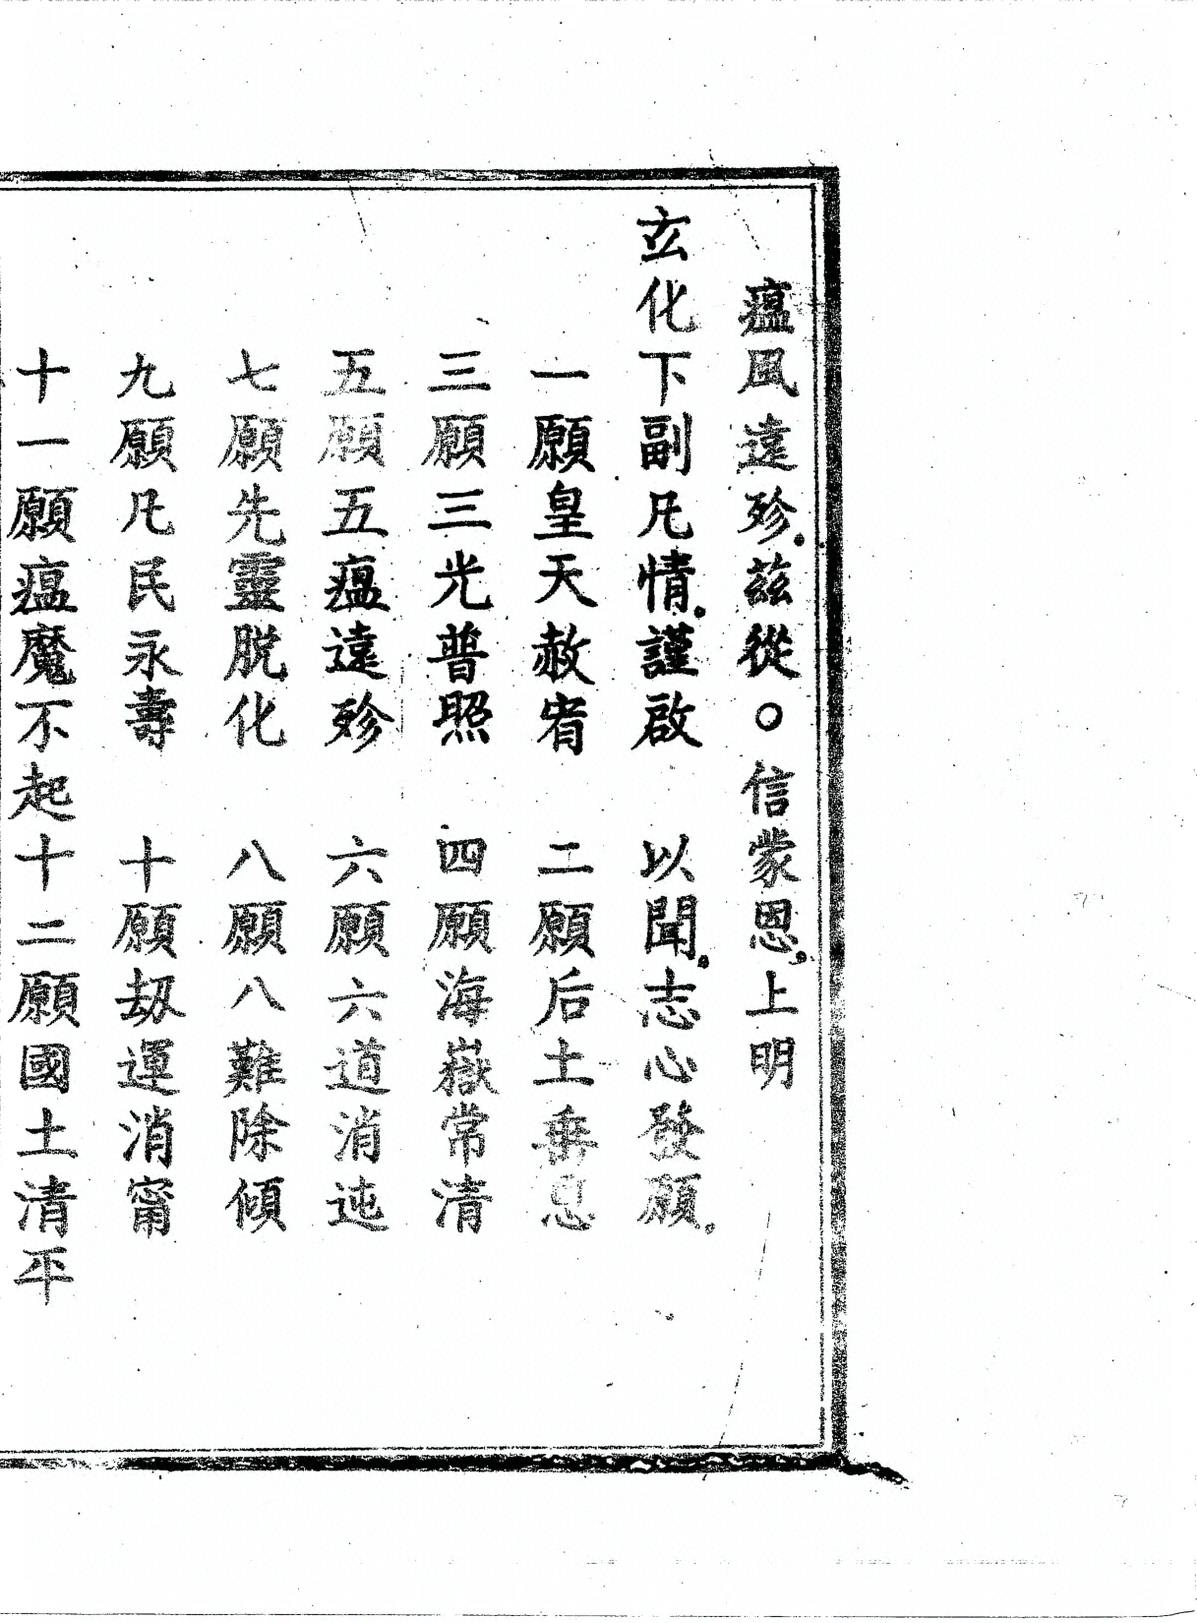 瘟風遠殄。茲從○信蒙恩。上明
玄化下副凡情。謹啟 以聞。志心發願。
一願皇天赦宥 二願后土垂恩
三願三光普照 四願海嶽常清
五願五瘟遠殄 六願六道消迍
七願先靈脱化 八願八難除傾
九願凡民永壽 十願劫運消甯
十一願瘟魔不起十二願國土清平